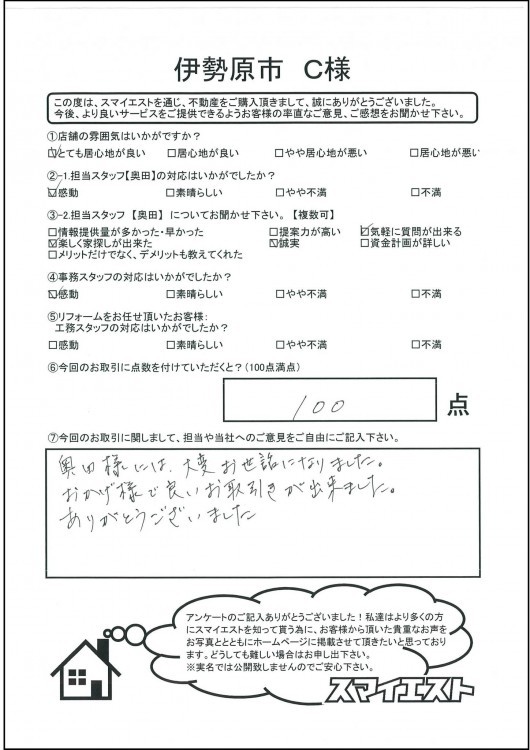 伊勢原市　C様
この度は、スマイエストを通じ、不動産をご購入頂きまして、誠にありがとうございました。
今後、より良いサービスをご提供できるようお客様の率直なご意見、ご感想をお聞かせ下さい。
①店舗の雰囲気はいかがですか？
☑とても居心地が良い　□居心地が良い　□やや居心地が悪い　□居心地が悪い
②-1.担当スタッフ【奥田】の対応はいかがでしたか？
☑感動　□素晴らしい　□やや不満　□不満
③-2.担当スタッフ【奥田】についてお聞かせ下さい。【複数可】
□情報提供量が多かった・早かった　□提案力が高い　☑気軽に質問が出来る
☑楽しく家探しが出来た　☑誠実　□資金計画が詳しい
□メリットだけでなく、デメリットも教えてくれた
④事務スタッフの対応はいかがでしたか？
☑感動　□素晴らしい　□やや不満　□不満
⑤リフォームをお任せ頂いたお客様：
工務スタッフの対応はいかがでしたか？
□感動　□素晴らしい　□やや不満　□不満
⑥今回のお取引に点数を付けていただくと？（100点満点）
100 点
⑦今回のお取引に関しまして、担当や当社へのご意見をご自由にご記入下さい。
奥田様には、大変お世話になりました。
おかげ様で良いお取引きが出来ました。
ありがとうございました
アンケートのご記入ありがとうございました！私達はより多くの方
にスマイエストを知って貰う為に、お客様から頂いた貴重なお声を
お写真とともにホームページに掲載させて頂きたいと思っており
ます。どうしても難しい場合はお申し出下さい。
※実名では公開致しませんのでご安心下さい。
スマイエスト